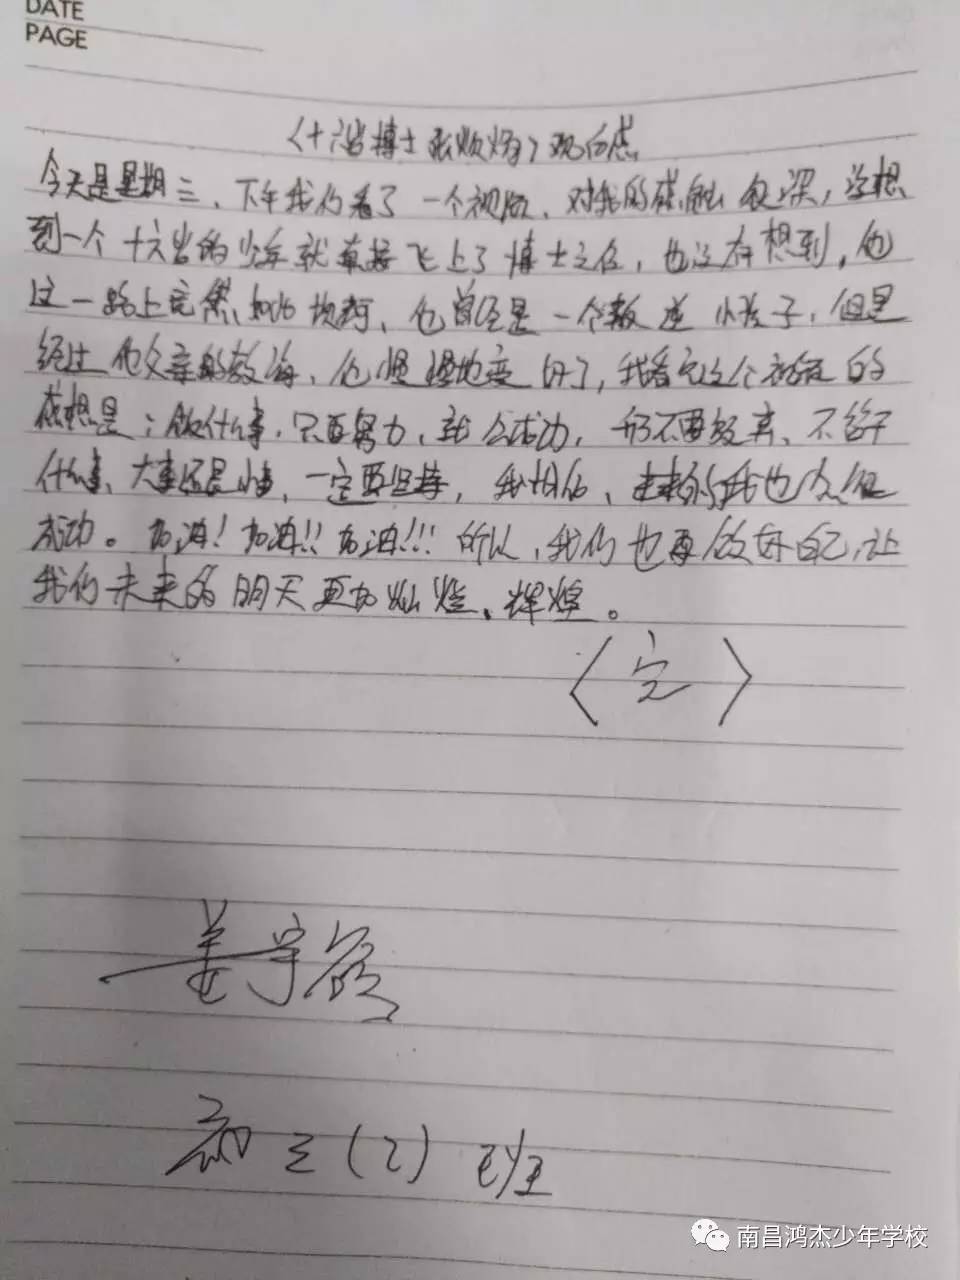 DATE
PAGE
《十六岁博士张炘炀》观后感
今天是星期三，下午我们看了一个视频，对我的感触很深，没想
到一个十六岁的少年就直接飞上了博士之位，也没有想到，他
这一路上竟然如此坎坷，他曾经是一个叛逆小孩子，但是
经过他父亲的教诲，他慢慢地变好了，我看完这个视频的
感想是：做什么事，只要努力，就会成功，而不要放弃，不管干
什么事，大事还是小事，一定要坚持，我相信，未来的我也会很
成功。加油！加油！！加油！！！所以，我们也要做好自己，让
我们未来的明天更加灿烂、辉煌。
〈完〉
姜宇
初三（2）班
南昌鸿杰少年学校